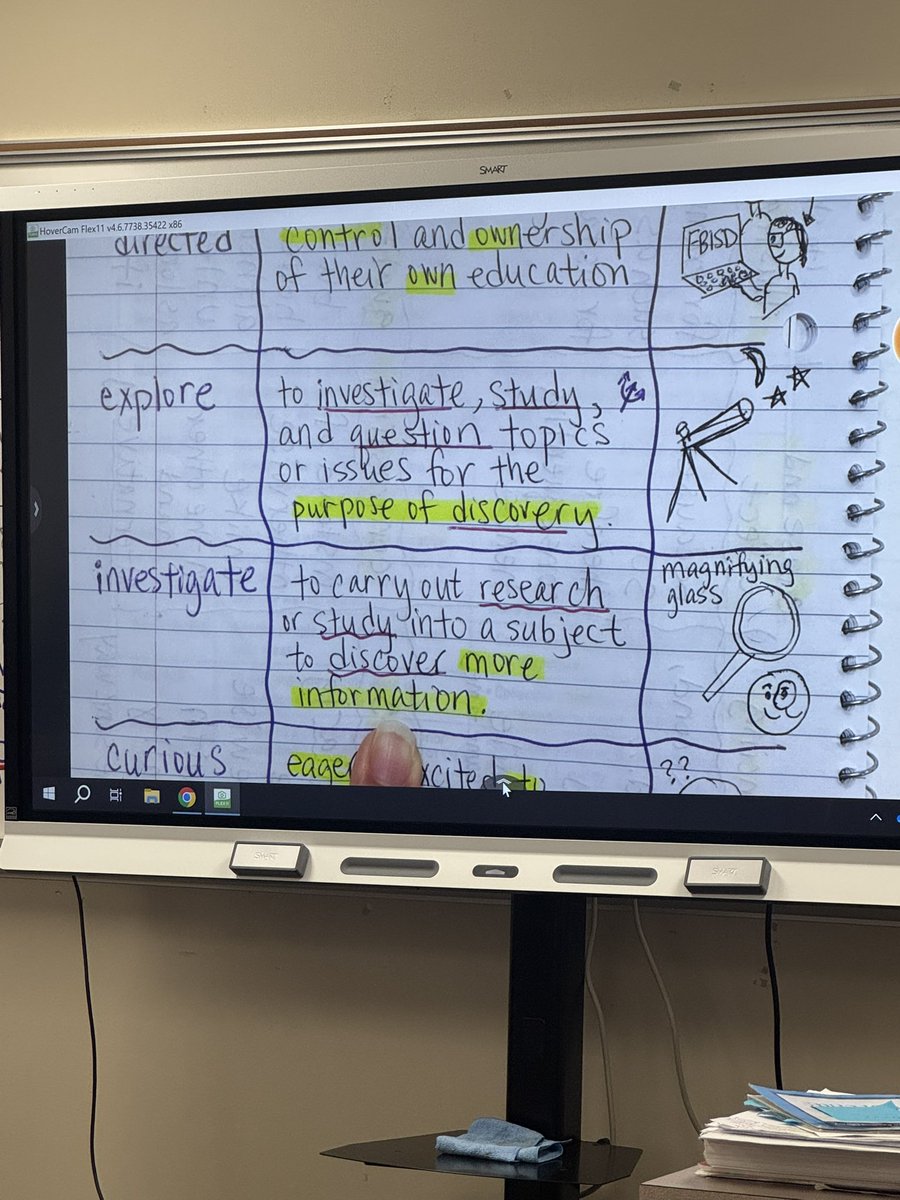 SMART
HoverCam Flex11 v4.6.7738.35422 x86
directed
control and ownership
of their own education
FBISD
explore
to investigate, study,
and question topics
or issues for the
purpose of discovery.
investigate
to carry out research
or study into a subject
to discover more
information.
magnifying
glass
curious
??
SMART
SMART